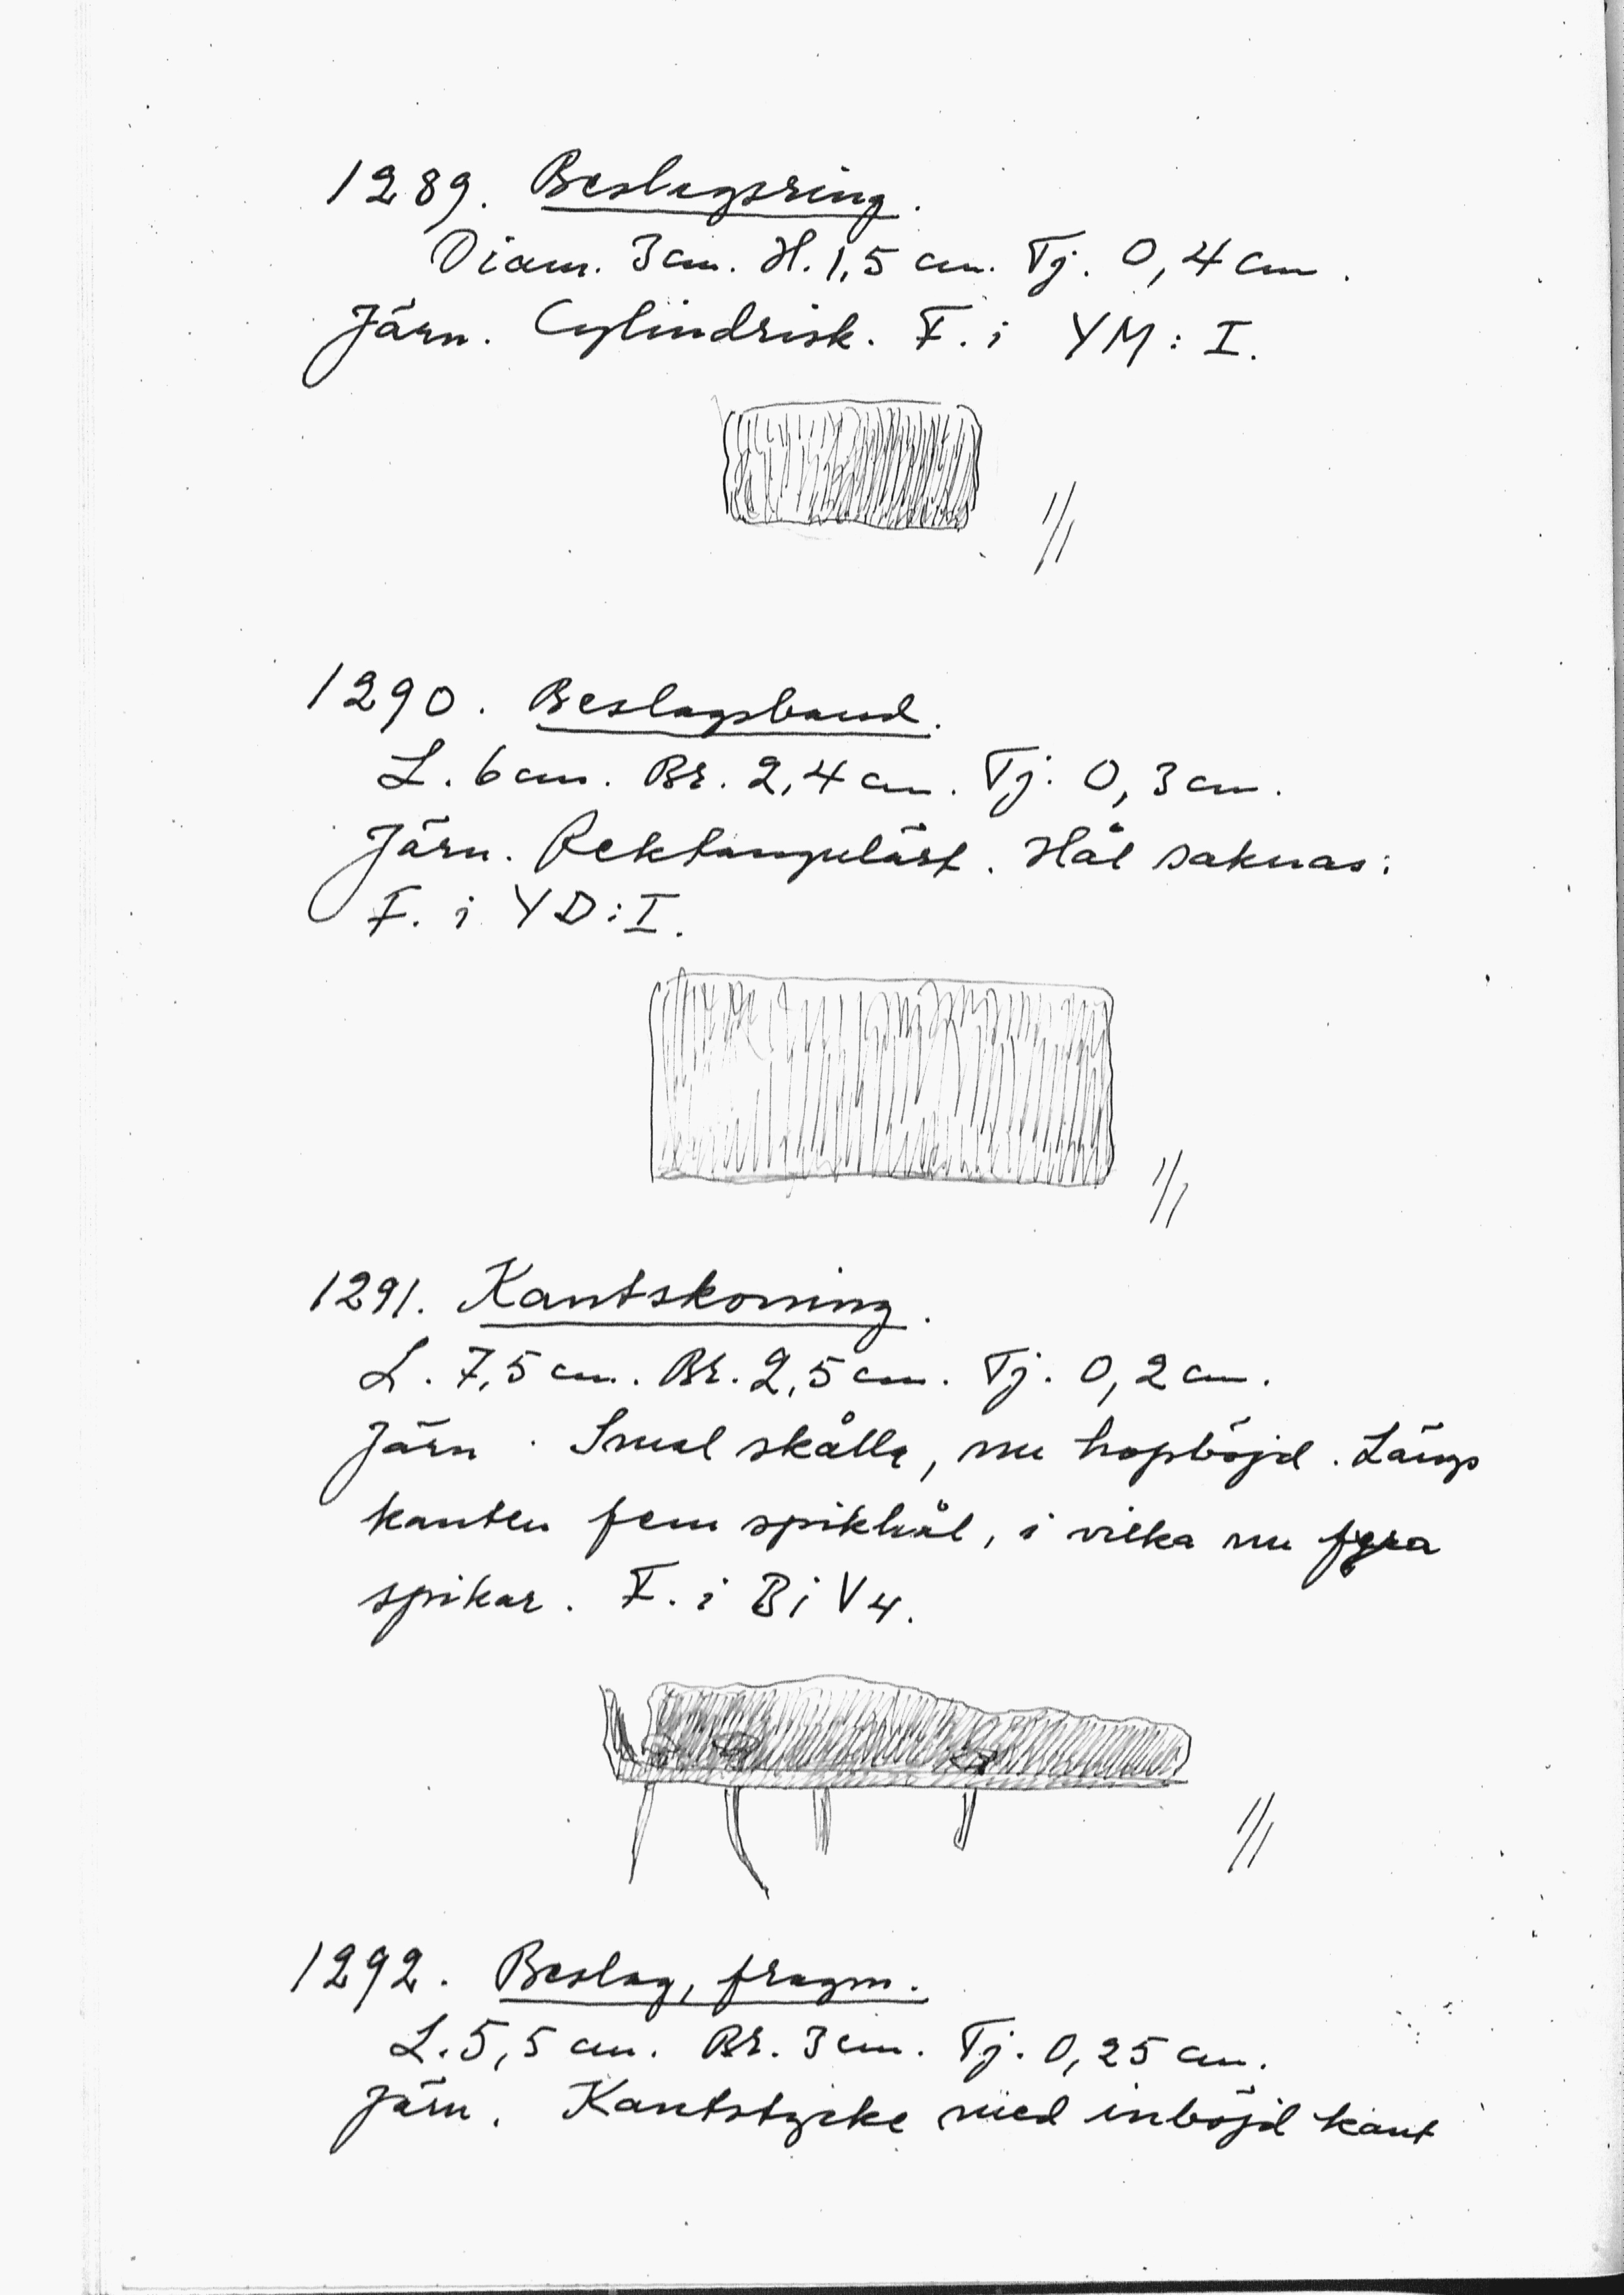 1289. Beslagsring.
Diam. 3 cm. H. 1,5 cm. Tj. 0,4 cm.
Järn. Cylindrisk. F. i YM: I.
1/1
1290. Beslagsband.
L. 6 cm. Br. 2,4 cm. Tj. 0,3 cm.
Järn. Rektangulärt. Hål saknas.
F. i YD: I.
1/1
1291. Kantskoning.
L. 7,5 cm. Br. 2,5 cm. Tj. 0,2 cm.
Järn. Smal skålla, nu hopböjd. Längs
kanten fem spikhål, i vilka nu fyra
spikar. F. i B i V4.
1/1
1292. Beslag, fragm.
L. 5,5 cm. Br. 3 cm. Tj. 0,25 cm.
Järn. Kantstycke med inböjd kant